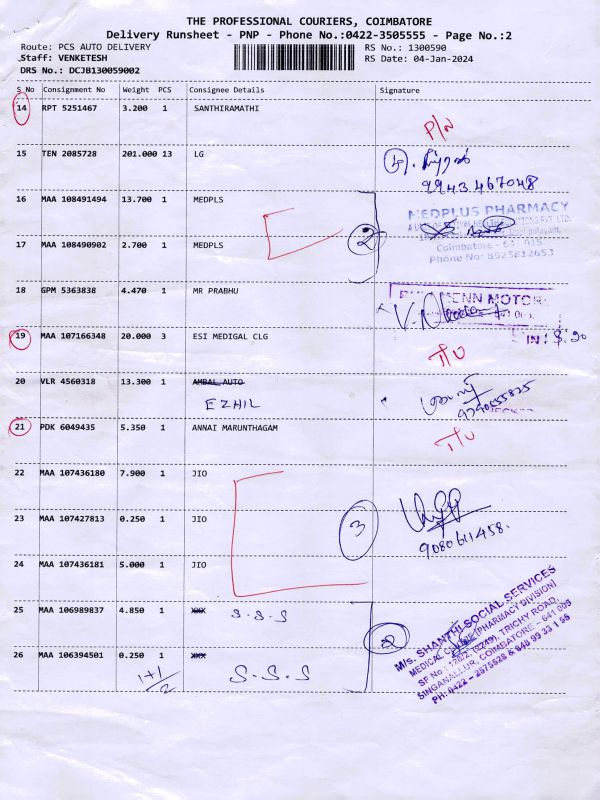 THE PROFESSIONAL COURIERS, COIMBATORE
Delivery Runsheet - PNP - Phone No.:0422-3505555 - Page No.:2
Route: PCS AUTO DELIVERY RS No.: 1300590
Staff: VENKETESH RS Date: 04-Jan-2024
DRS No.: DCJB130059002
S No Consignment No Weight PCS Consignee Details Signature
14 RPT 5251467 3.200 1 SANTHIRAMATHI
P/N
15 TEN 2085728 201.000 13 LG
9943467048
16 MAA 108491494 13.700 1 MEDPLS
MEDPLUS PHARMACY
2
17 MAA 108490902 2.700 1 MEDPLS
Coimbatore - 641 015.
Phone No: 8925812653
18 GPM 5363838 4.470 1 MR PRABHU
MOTOR
IN:
19 MAA 107166348 20.000 3 ESI MEDIGAL CLG
20 VLR 4560318 13.300 1 AMBAL AUTO
EZHIL
21 PDK 6049435 5.350 1 ANNAI MARUNTHAGAM
22 MAA 107436180 7.900 1 JIO
23 MAA 107427813 0.250 1 JIO
3
9080611458.
24 MAA 107436181 5.000 1 JIO
25 MAA 106989837 4.850 1 XXX S.S.S
2
M/s. SHANTHI SOCIAL SERVICES
MEDICAL (PHARMACY DIVISION)
SF No : TRICHY ROAD,
SINGANALLUR, COIMBATORE - 641 005
PH: 0422 -
26 MAA 106394501 0.250 1 XXX S.S.S
1+1/2